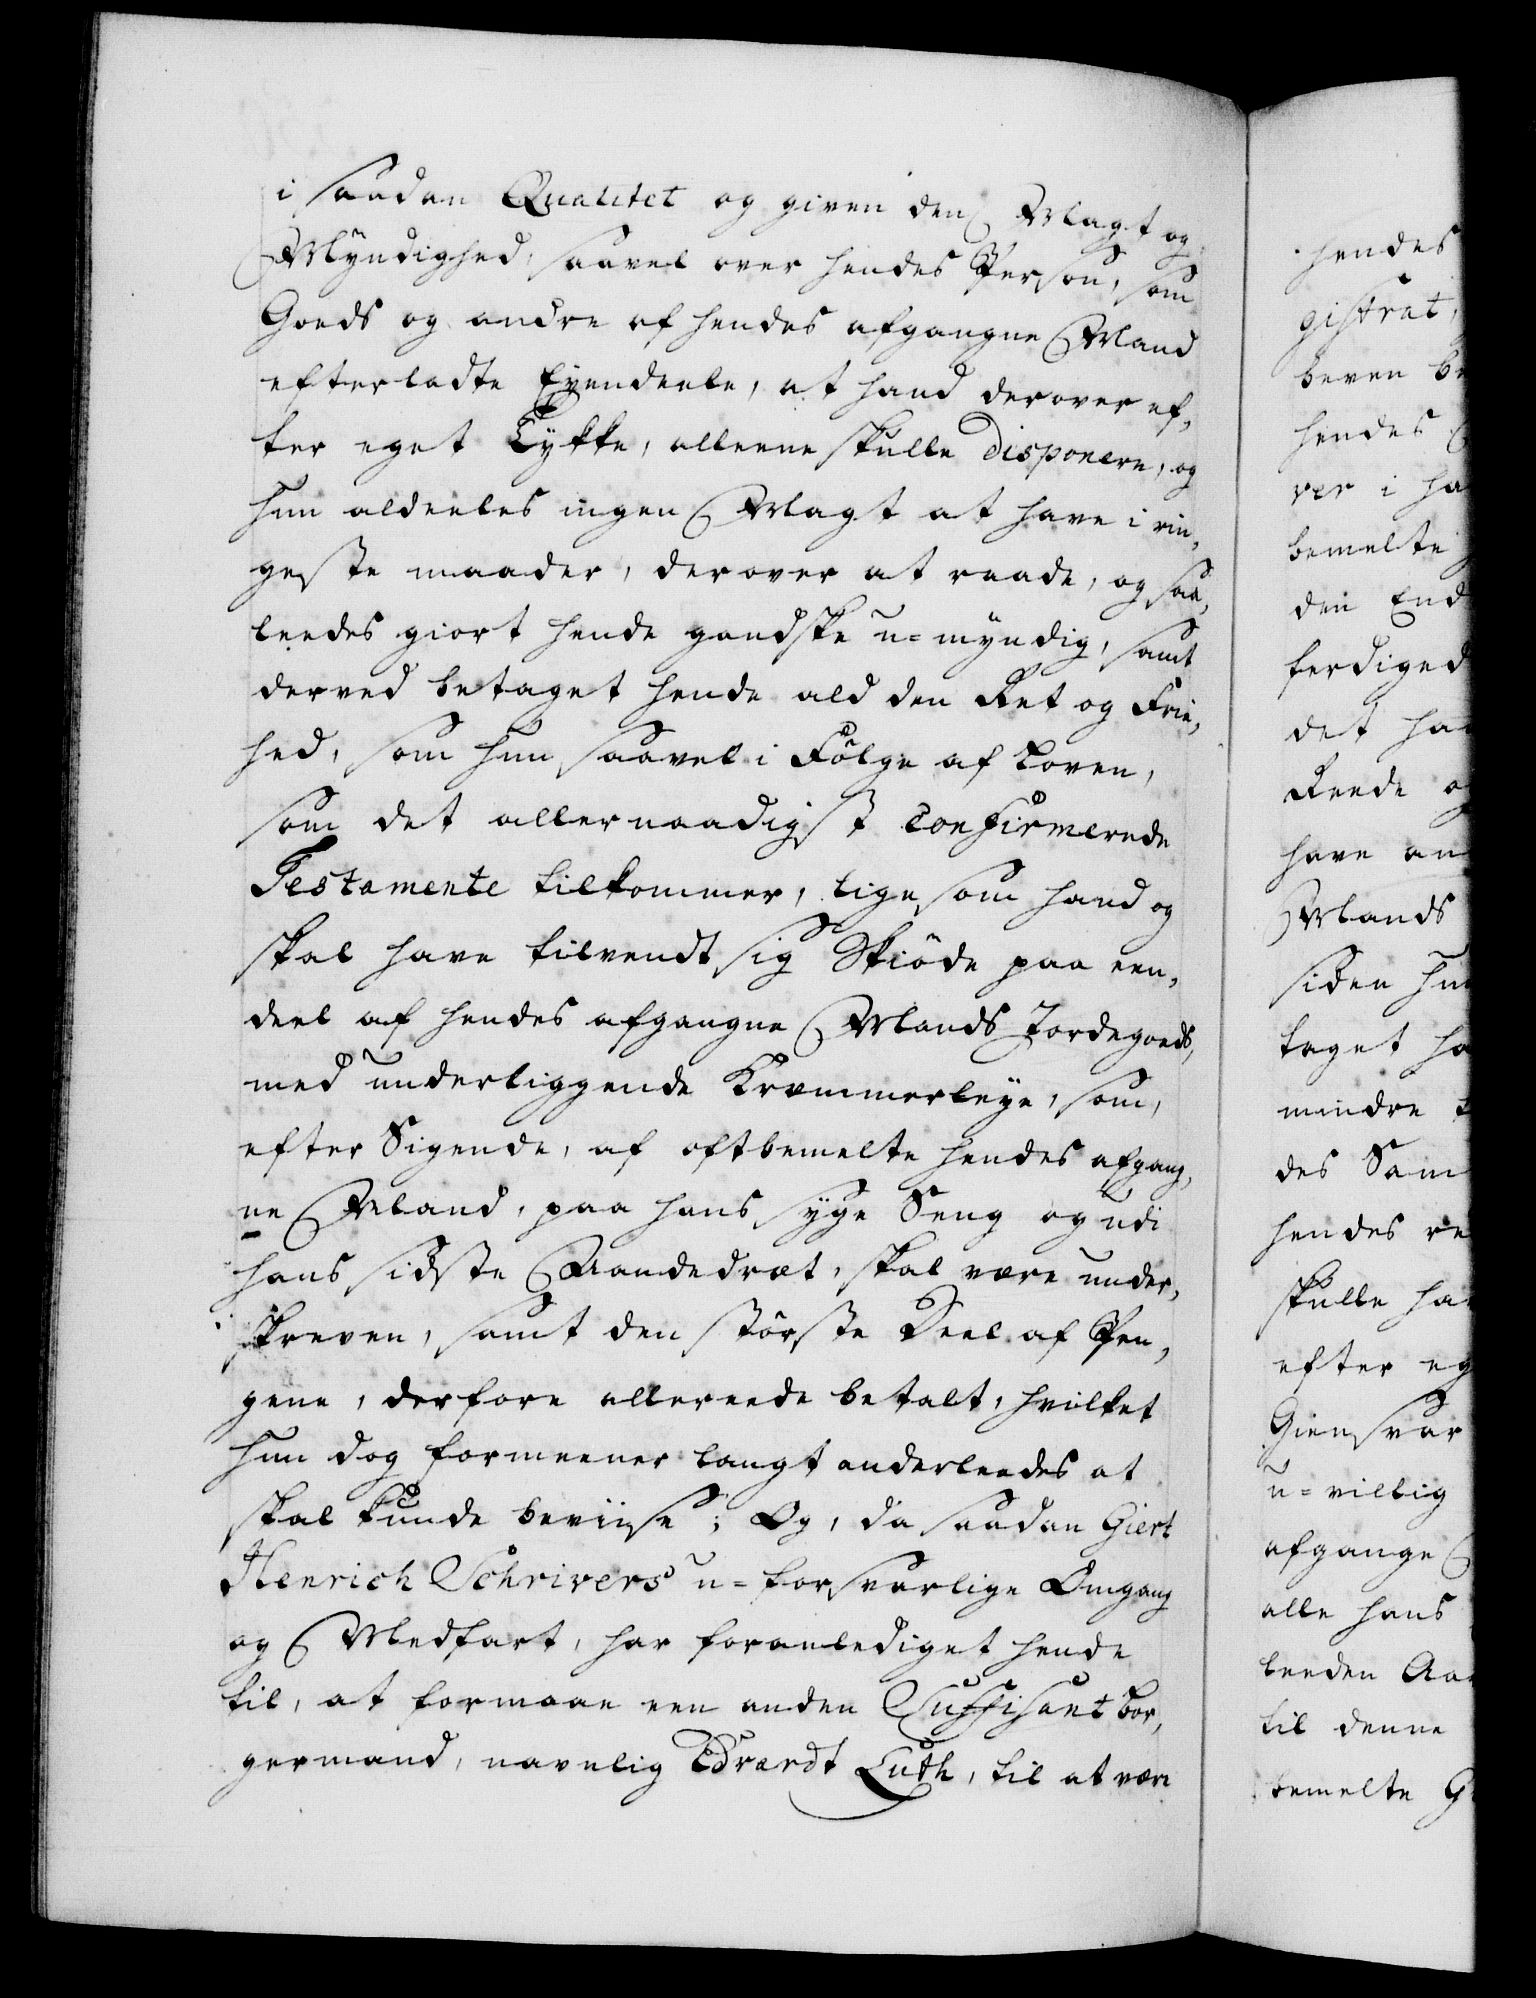 i saadan Qualitet og given den Magt og
Myndighed, saavel over hendes Person, som
Goeds og andre af hendes afgangne Mand
efterladte Eyendeele, at hand derover ef,
ter eget Tykke, alleene skulle disponere, og
hun aldeeles ingen Magt at have i rin,
geste maader, derover at raade, og saa,
leedes giort hende gandske u=myndig, samt
derved betaget hende ald den Ret og Frie,
hed, som hun saavel i Fölge af Loven,
som det allernaadigst Confirmerede
Testamente tilkommer, ligesom hand og
skal have tilvendt sig Skiöde paa een,
deel af hendes afgangne Mands Jordegoeds,
med underliggende Krammerleye, som,
efter Sigende, af oftbemelte hendes afgang,
ne Mand, paa hans syge Seng og udi
hans sidste Aandedræt, skal være under,
skreven, samt den störste Deel af Pen,
gene, derfore allereede betalt, hvilket
hun dog formeener langt anderleedes at
skal kunde beviise; Og, da saadan Giert
Henrich Schrivers u=forsvarlige Omgang
og Medfart, har foranlediget hende
til, at formaae een anden Suffisant bor,
germand, navnlig Edvardt Luth, til at være
hendes
gistrat,
beven
hendes
ver i
bemelte
den End
ferdiged
det
Reede
have
Mands
siden
taget
mindre
des Sam
hendes
skulle
efter
Giensvar
u=villig
afgange
alle hans
leeden
til denne
bemelte